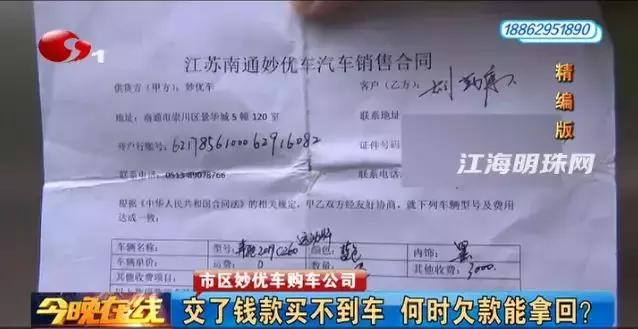 1
18862951890
精编版
江苏南通妙优车汽车销售合同
供货方(甲方):妙优车 客户(乙方):
地址:南通市崇川区景华城5幢120室 联系地址:
开户行账号:6217856100062916082 证件号码:
联系电话:0513-89078766 联系电话:
江海明珠网
根据《中华人民共和国合同法》的相关规定,甲乙双方经友好协商,就下列车辆型号及费用
达成一致:
车辆名称: 型号:奔驰2017C260运动 颜色:蓝色 内饰:黑
车辆单价: 运费:0 其他收费:3000
其他收费项目:
市区妙优车购车公司
今晚在线
交了钱款买不到车 何时欠款能拿回?